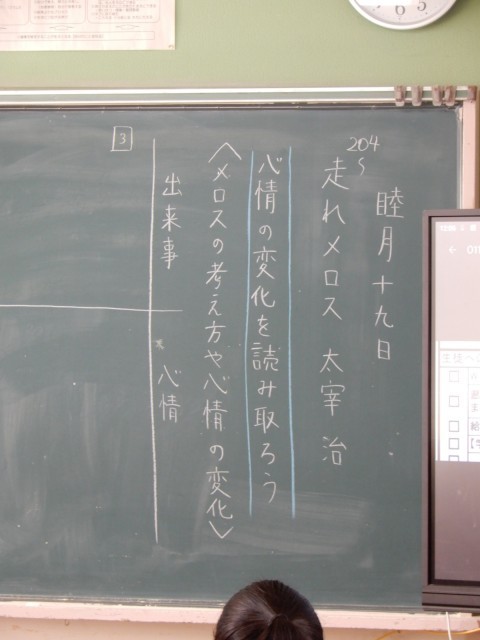 睦月十九日
204~
走れメロス 太宰 治
心情の変化を読み取ろう
〈メロスの考え方や心情の変化〉
3
出来事
心情